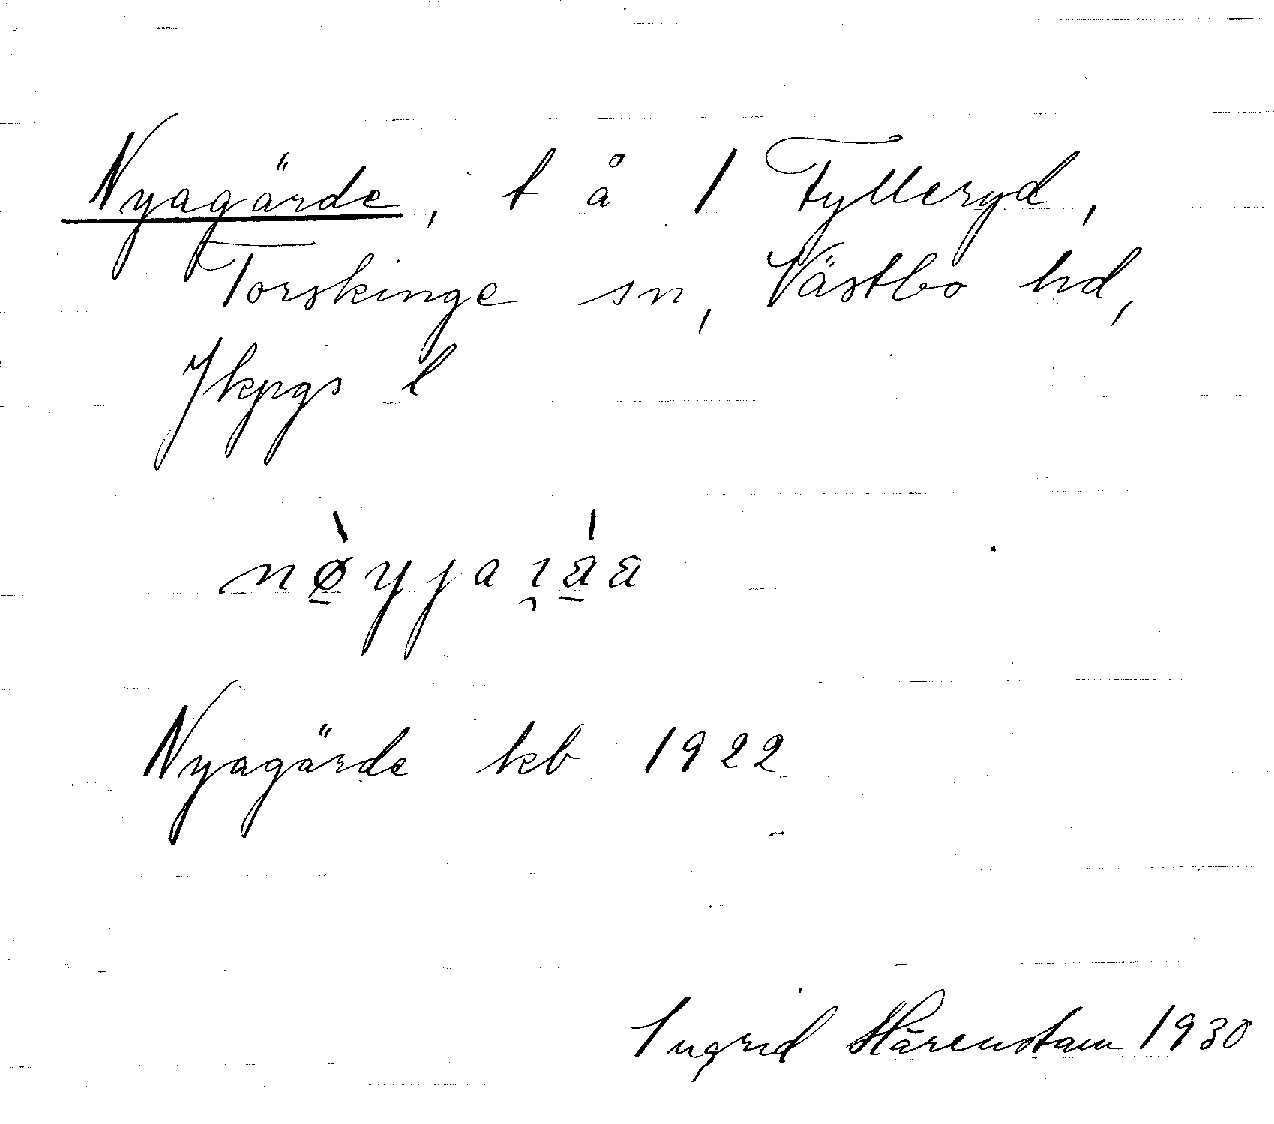 Nyagärde, t å 1 Tylleryd,
Torskinge sn, Västbo hd,
Jkpgs l
Nyagärde kb 1922
Ingrid Härenstam 1930